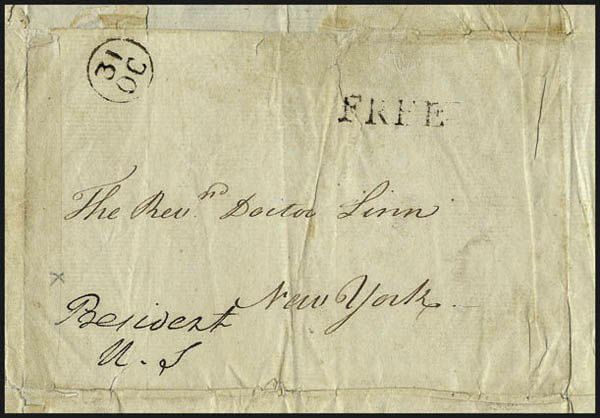 31
OC
FREE
The Rev.nd Doctor Linn
New York.
President
U. S